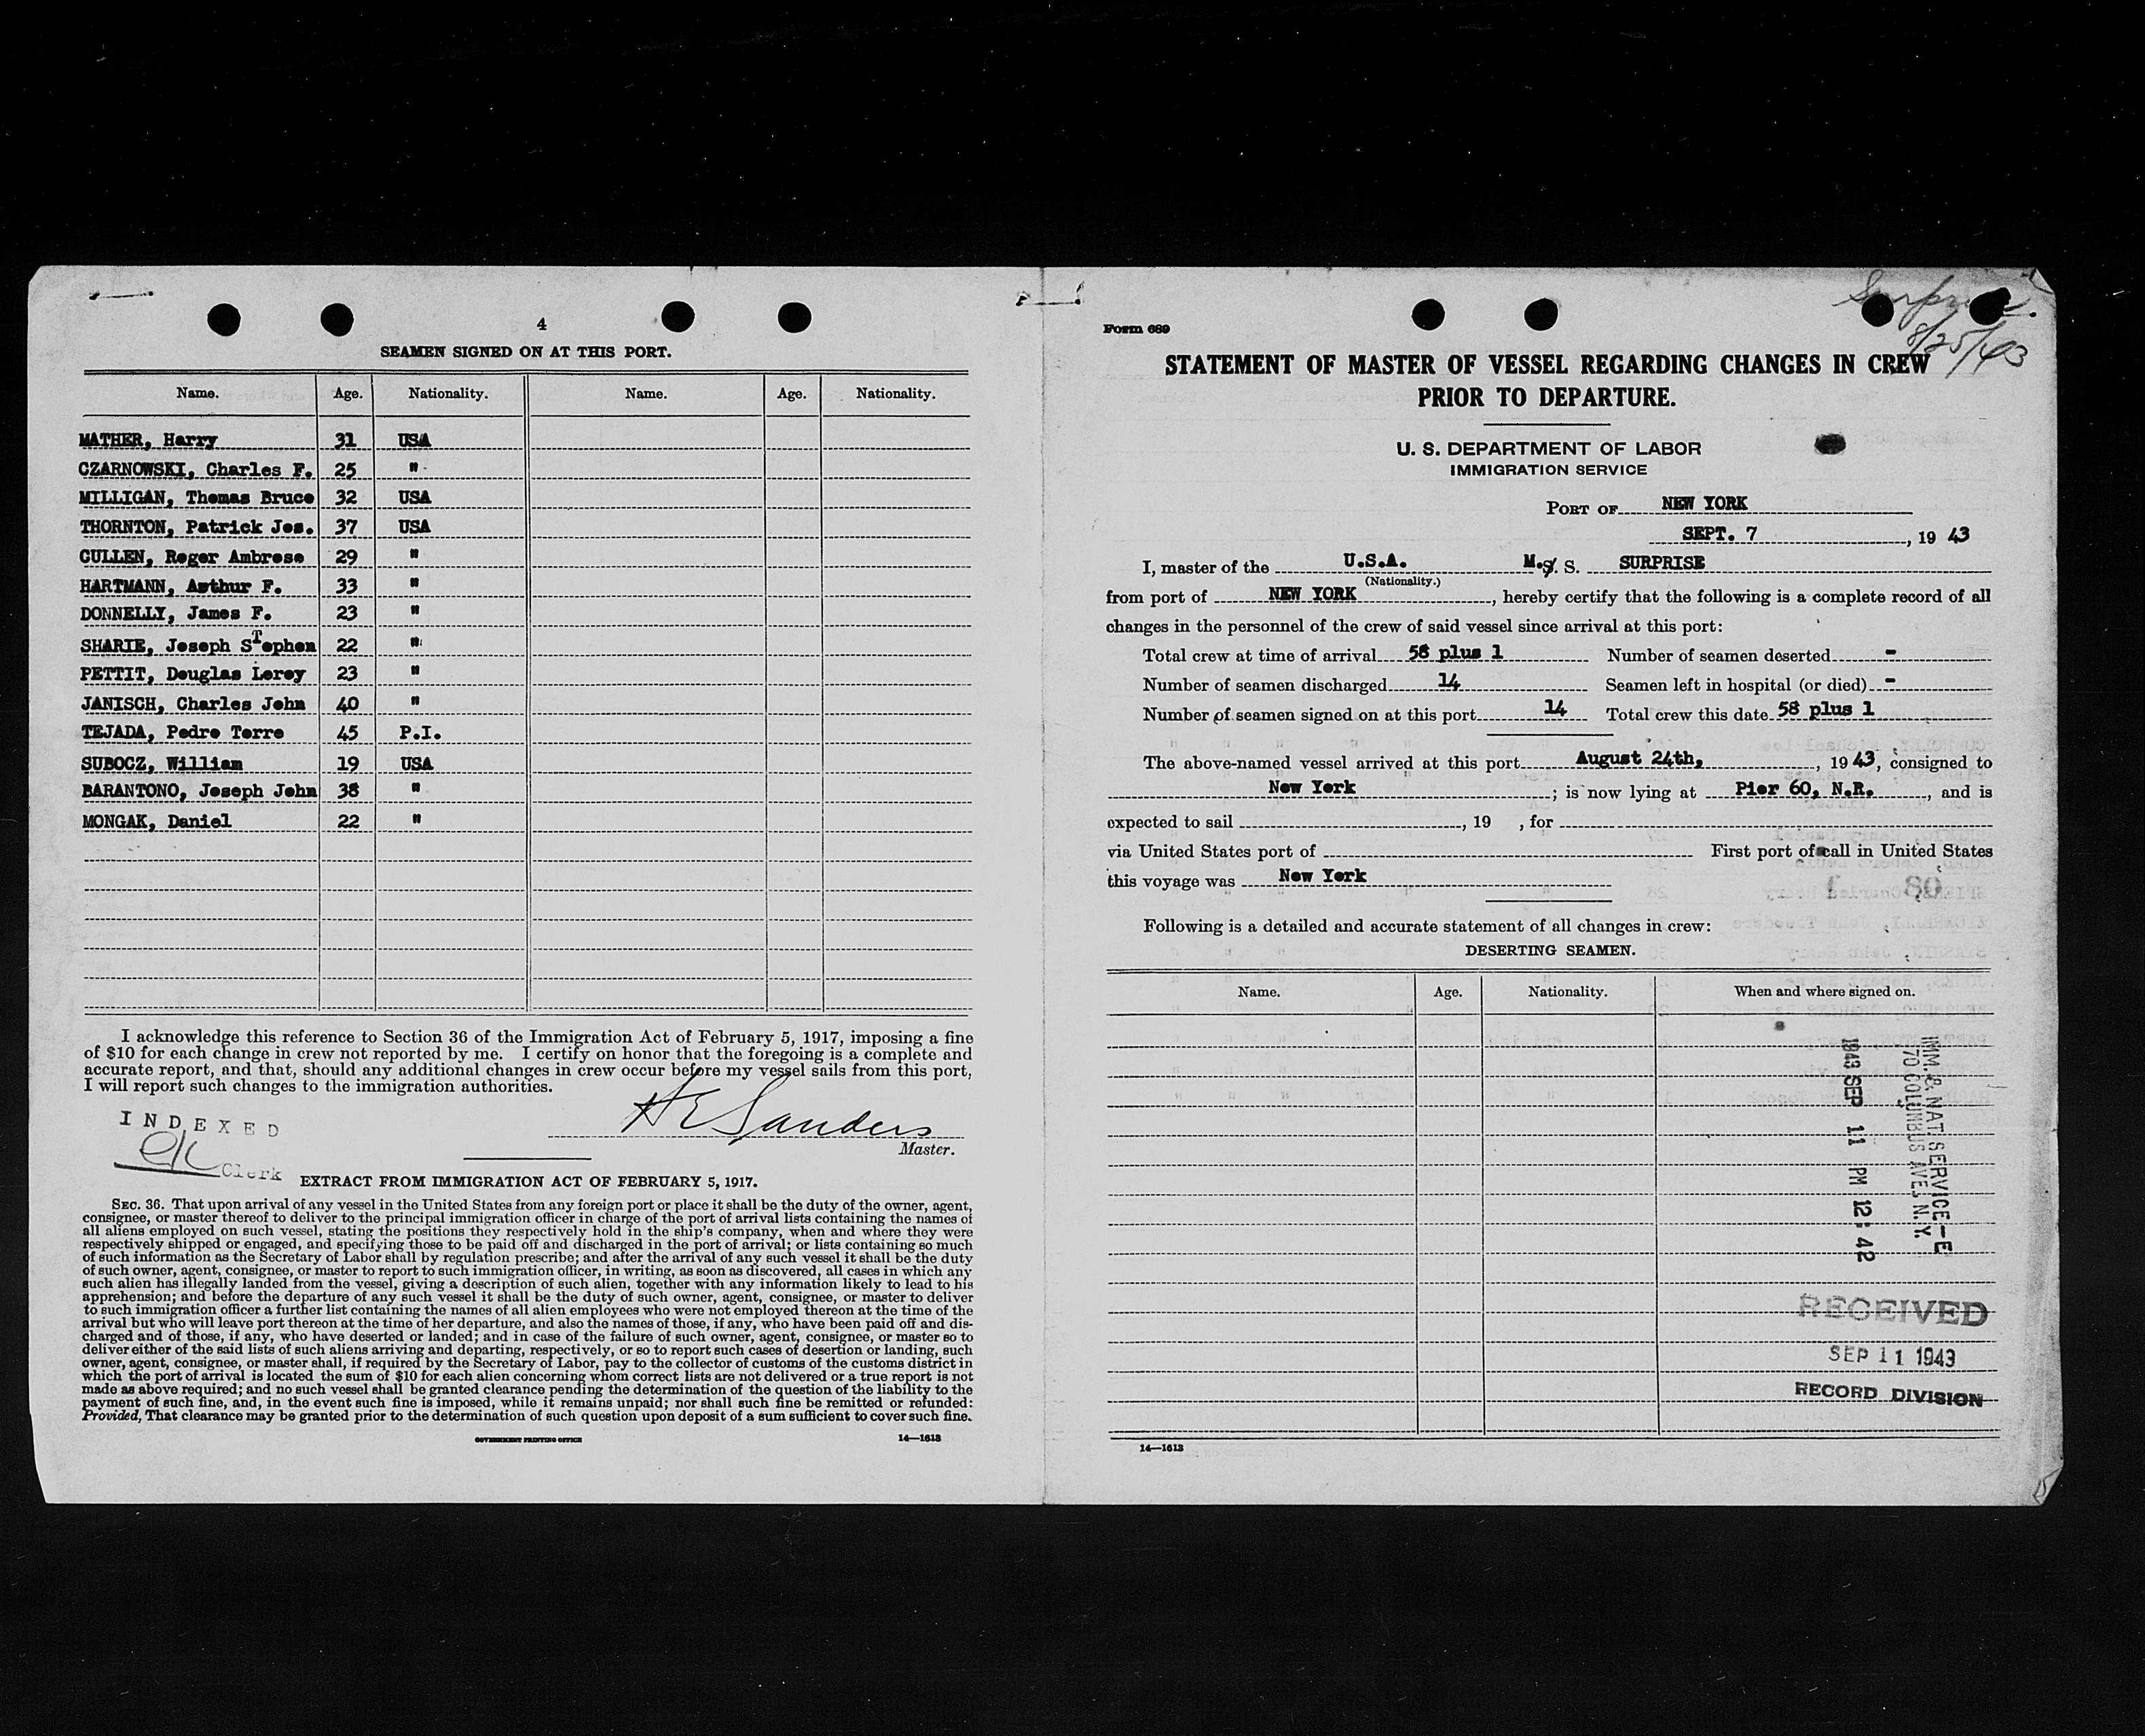 4
SEAMEN SIGNED ON AT THIS PORT.
Name. Age. Nationality. Name. Age. Nationality.
MATHER, Harry 31 USA
CZARNOWSKI, Charles F. 25 "
MILLIGAN, Thomas Bruce 32 USA
THORNTON, Patrick Jos. 37 USA
CULLEN, Roger Ambrose 29 "
HARTMANN, Arthur F. 33 "
DONNELLY, James F. 23 "
SHARIE, Joseph STephen 22 "
PETTIT, Douglas Leroy 23 "
JANISCH, Charles John 40 "
TEJADA, Pedro Torre 45 P.I.
SUBOCZ, William 19 USA
BARANTONO, Joseph John 38 "
MONGAK, Daniel 22 "
I acknowledge this reference to Section 36 of the Immigration Act of February 5, 1917, imposing a fine
of $10 for each change in crew not reported by me. I certify on honor that the foregoing is a complete and
accurate report, and that, should any additional changes in crew occur before my vessel sails from this port,
I will report such changes to the immigration authorities.
H E Sanders
Master.
INDEXED
Clerk
EXTRACT FROM IMMIGRATION ACT OF FEBRUARY 5, 1917.
SEC. 36. That upon arrival of any vessel in the United States from any foreign port or place it shall be the duty of the owner, agent,
consignee, or master thereof to deliver to the principal immigration officer in charge of the port of arrival lists containing the names of
all aliens employed on such vessel, stating the positions they respectively hold in the ship's company, when and where they were
respectively shipped or engaged, and specifying those to be paid off and discharged in the port of arrival; or lists containing so much
of such information as the Secretary of Labor shall by regulation prescribe; and after the arrival of any such vessel it shall be the duty
of such owner, agent, consignee, or master to report to such immigration officer, in writing, as soon as discovered, all cases in which any
such alien has illegally landed from the vessel, giving a description of such alien, together with any information likely to lead to his
apprehension; and before the departure of any such vessel it shall be the duty of such owner, agent, consignee, or master to deliver
to such immigration officer a further list containing the names of all alien employees who were not employed thereon at the time of the
arrival but who will leave port thereon at the time of her departure, and also the names of those, if any, who have been paid off and dis-
charged and of those, if any, who have deserted or landed; and in case of the failure of such owner, agent, consignee, or master so to
deliver either of the said lists of such aliens arriving and departing, respectively, or so to report such cases of desertion or landing, such
owner, agent, consignee, or master shall, if required by the Secretary of Labor, pay to the collector of customs of the customs district in
which the port of arrival is located the sum of $10 for each alien concerning whom correct lists are not delivered or a true report is not
made as above required; and no such vessel shall be granted clearance pending the determination of the question of the liability to the
payment of such fine, and, in the event such fine is imposed, while it remains unpaid; nor shall such fine be remitted or refunded:
Provided, That clearance may be granted prior to the determination of such question upon deposit of a sum sufficient to cover such fine.
GOVERNMENT PRINTING OFFICE 14—1613
Surprise.
8/25/43
Form 689
STATEMENT OF MASTER OF VESSEL REGARDING CHANGES IN CREW
PRIOR TO DEPARTURE.
U. S. DEPARTMENT OF LABOR
IMMIGRATION SERVICE
PORT OF NEW YORK
SEPT. 7, 19 43
I, master of the U.S.A. M.S. S. SURPRISE
(Nationality.)
from port of NEW YORK, hereby certify that the following is a complete record of all
changes in the personnel of the crew of said vessel since arrival at this port:
Total crew at time of arrival 58 plus 1 Number of seamen deserted -
Number of seamen discharged 14 Seamen left in hospital (or died) -
Number of seamen signed on at this port 14 Total crew this date 58 plus 1
The above-named vessel arrived at this port August 24th, , 19 43, consigned to
New York ; is now lying at Pier 60, N.R. , and is
expected to sail , 19 , for
via United States port of First port of call in United States
this voyage was New York
Following is a detailed and accurate statement of all changes in crew:
DESERTING SEAMEN.
Name. Age. Nationality. When and where signed on.
IMM. & NAT. SERVICE—E
70 COLUMBUS AVE., N.Y.
1943 SEP 11 PM 12:42
RECEIVED
SEP 11 1943
RECORD DIVISION
14—1613